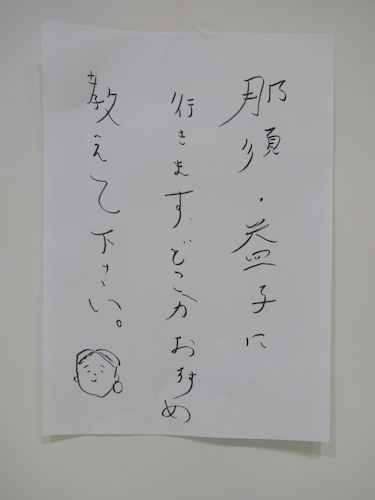 那須・益子に
行きます、どこかおすすめ
教えて下さい。